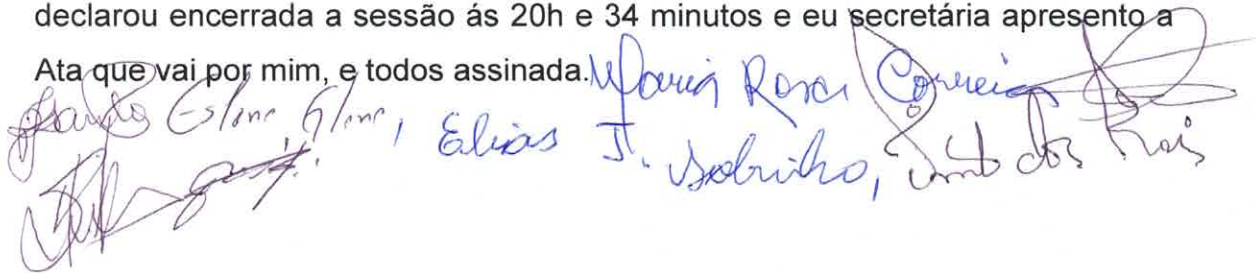 declarou encerrada a sessão ás 20h e 34 minutos e eu secretária apresento a
Ata que vai por mim, e todos assinada. Maria Rosa Correia
Elias J. Sobrinho, dos Reis